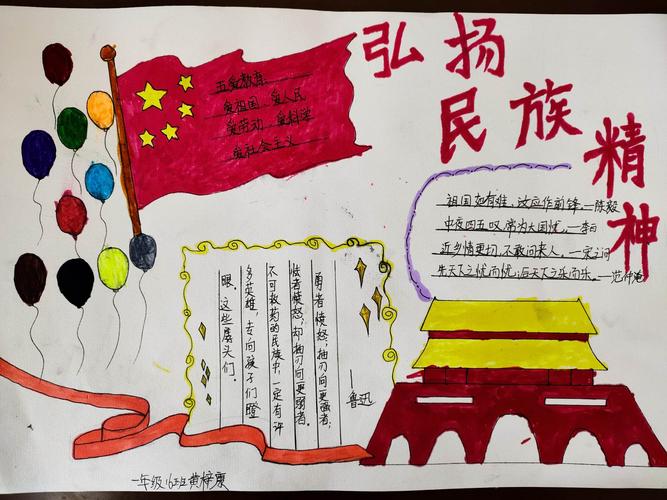 弘扬
民族
精神
五爱教育
爱祖国、爱人民
爱劳动、爱科学
爱社会主义
祖国如有难,汝应作前锋。—陈毅
中夜四五叹,常为大国忧。—李白
近乡情更切,不敢问来人。—宋之问
先天下之忧而忧;后天下之乐而乐。—范仲淹
勇者愤怒,抽刃向更强者;
怯者愤怒,却抽刃向更弱者。
不可救药的民族中,一定有许
多英雄,专向孩子们瞪
眼。这些孱头们。
——鲁迅
一年级(6)班黄梓康